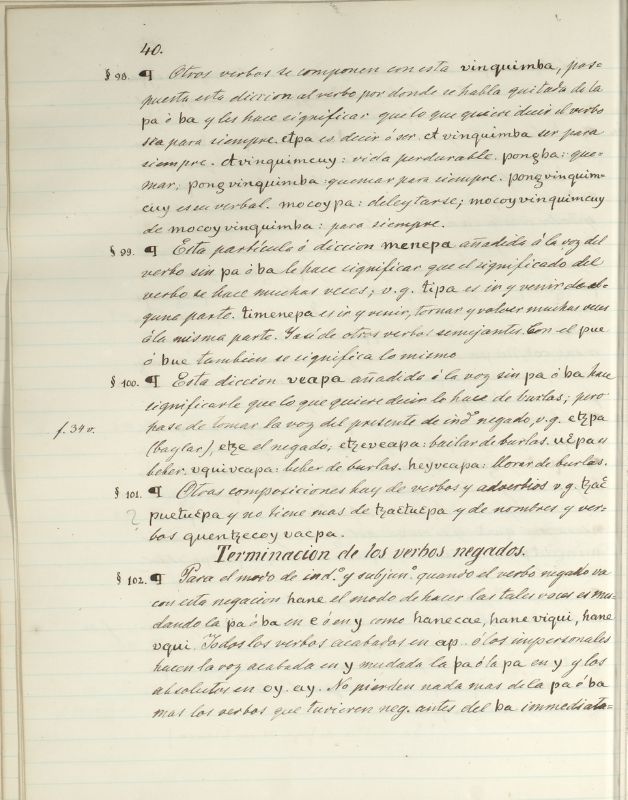 40.
§ 98. ¶ Otros verbos se componen con esta vinquimba, pos-
puesta esta diccion al verbo por donde se habla quitada de la
pa ó ba y les hace significar que lo que quiere decir el verbo
sea para siempre. etpa es decir ó ser. et vinquimba ser para
siempre. et vinquimcuy: vida perdurable. pongba: que-
mar; pong vinquimba: quemar para siempre. pong vinquim-
cuy es su verbal. mocoypa: deleytarse; mocoy vinquimcuy
de mocoy vinquimba: para siempre.
§ 99. ¶ Esta partícula ó diccion menepa añadida á la voz del
verbo sin pa ó ba le hace significar que el significado del
verbo se hace muchas veces; v.g. tipa es ir y venir de al-
guna parte. timenepa es ir y venir, tornar y volver muchas veces
á la misma parte. Y así de otros verbos semejantes. Con el pue
ó bue tambien se significa lo mismo
§ 100. ¶ Esta diccion veapa añadida á la voz sin pa ó ba hace
significarle que lo que quiere decir lo hace de burlas; pero
hase de tomar la voz del presente de ind.º negado, v.g. etzpa
f. 34 v.
(baylar), etze el negado; etzeveapa: bailar de burlas. uĕpa u
beber. vquiveapa: beber de burlas. heyveapa: llorar de burlas.
§ 101. ¶ Otras composiciones hay de verbos y adverbios v.g. tzaĕ
?
puetuĕpa y no tiene mas de tzaĕtuĕpa y de nombres y ver-
bos quentzecoy vaepa.
Terminacion de los verbos negados.
§ 102. ¶ Para el modo de ind.º y subjun.º quando el verbo negado va
con esta negacion hane el modo de hacer las tales voces es mu-
dando la pa ó ba en e ó en y como hanecae, hane viqui, hane
vqui. Todos los verbos acabados en ap.. ó los impersonales
hacen la voz acabada en y mudada la pa ó la pa en y y los
absolutos en oy. ay. No pierden nada mas de la pa ó ba
mas los verbos que tuvieren neg. antes del ba immediata=